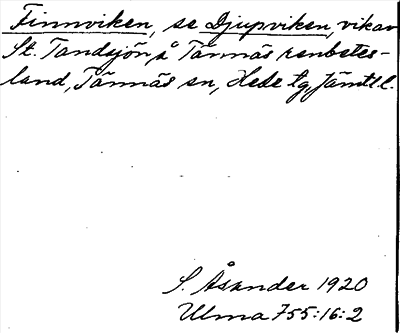 Finnviken, se Djupviken, vik av
St. Tandsjön å Tännäs renbetes-
land, Tännäs sn, Hede tg, Jämtl. l.
S. Åsander 1920
Ulma 755:16:2